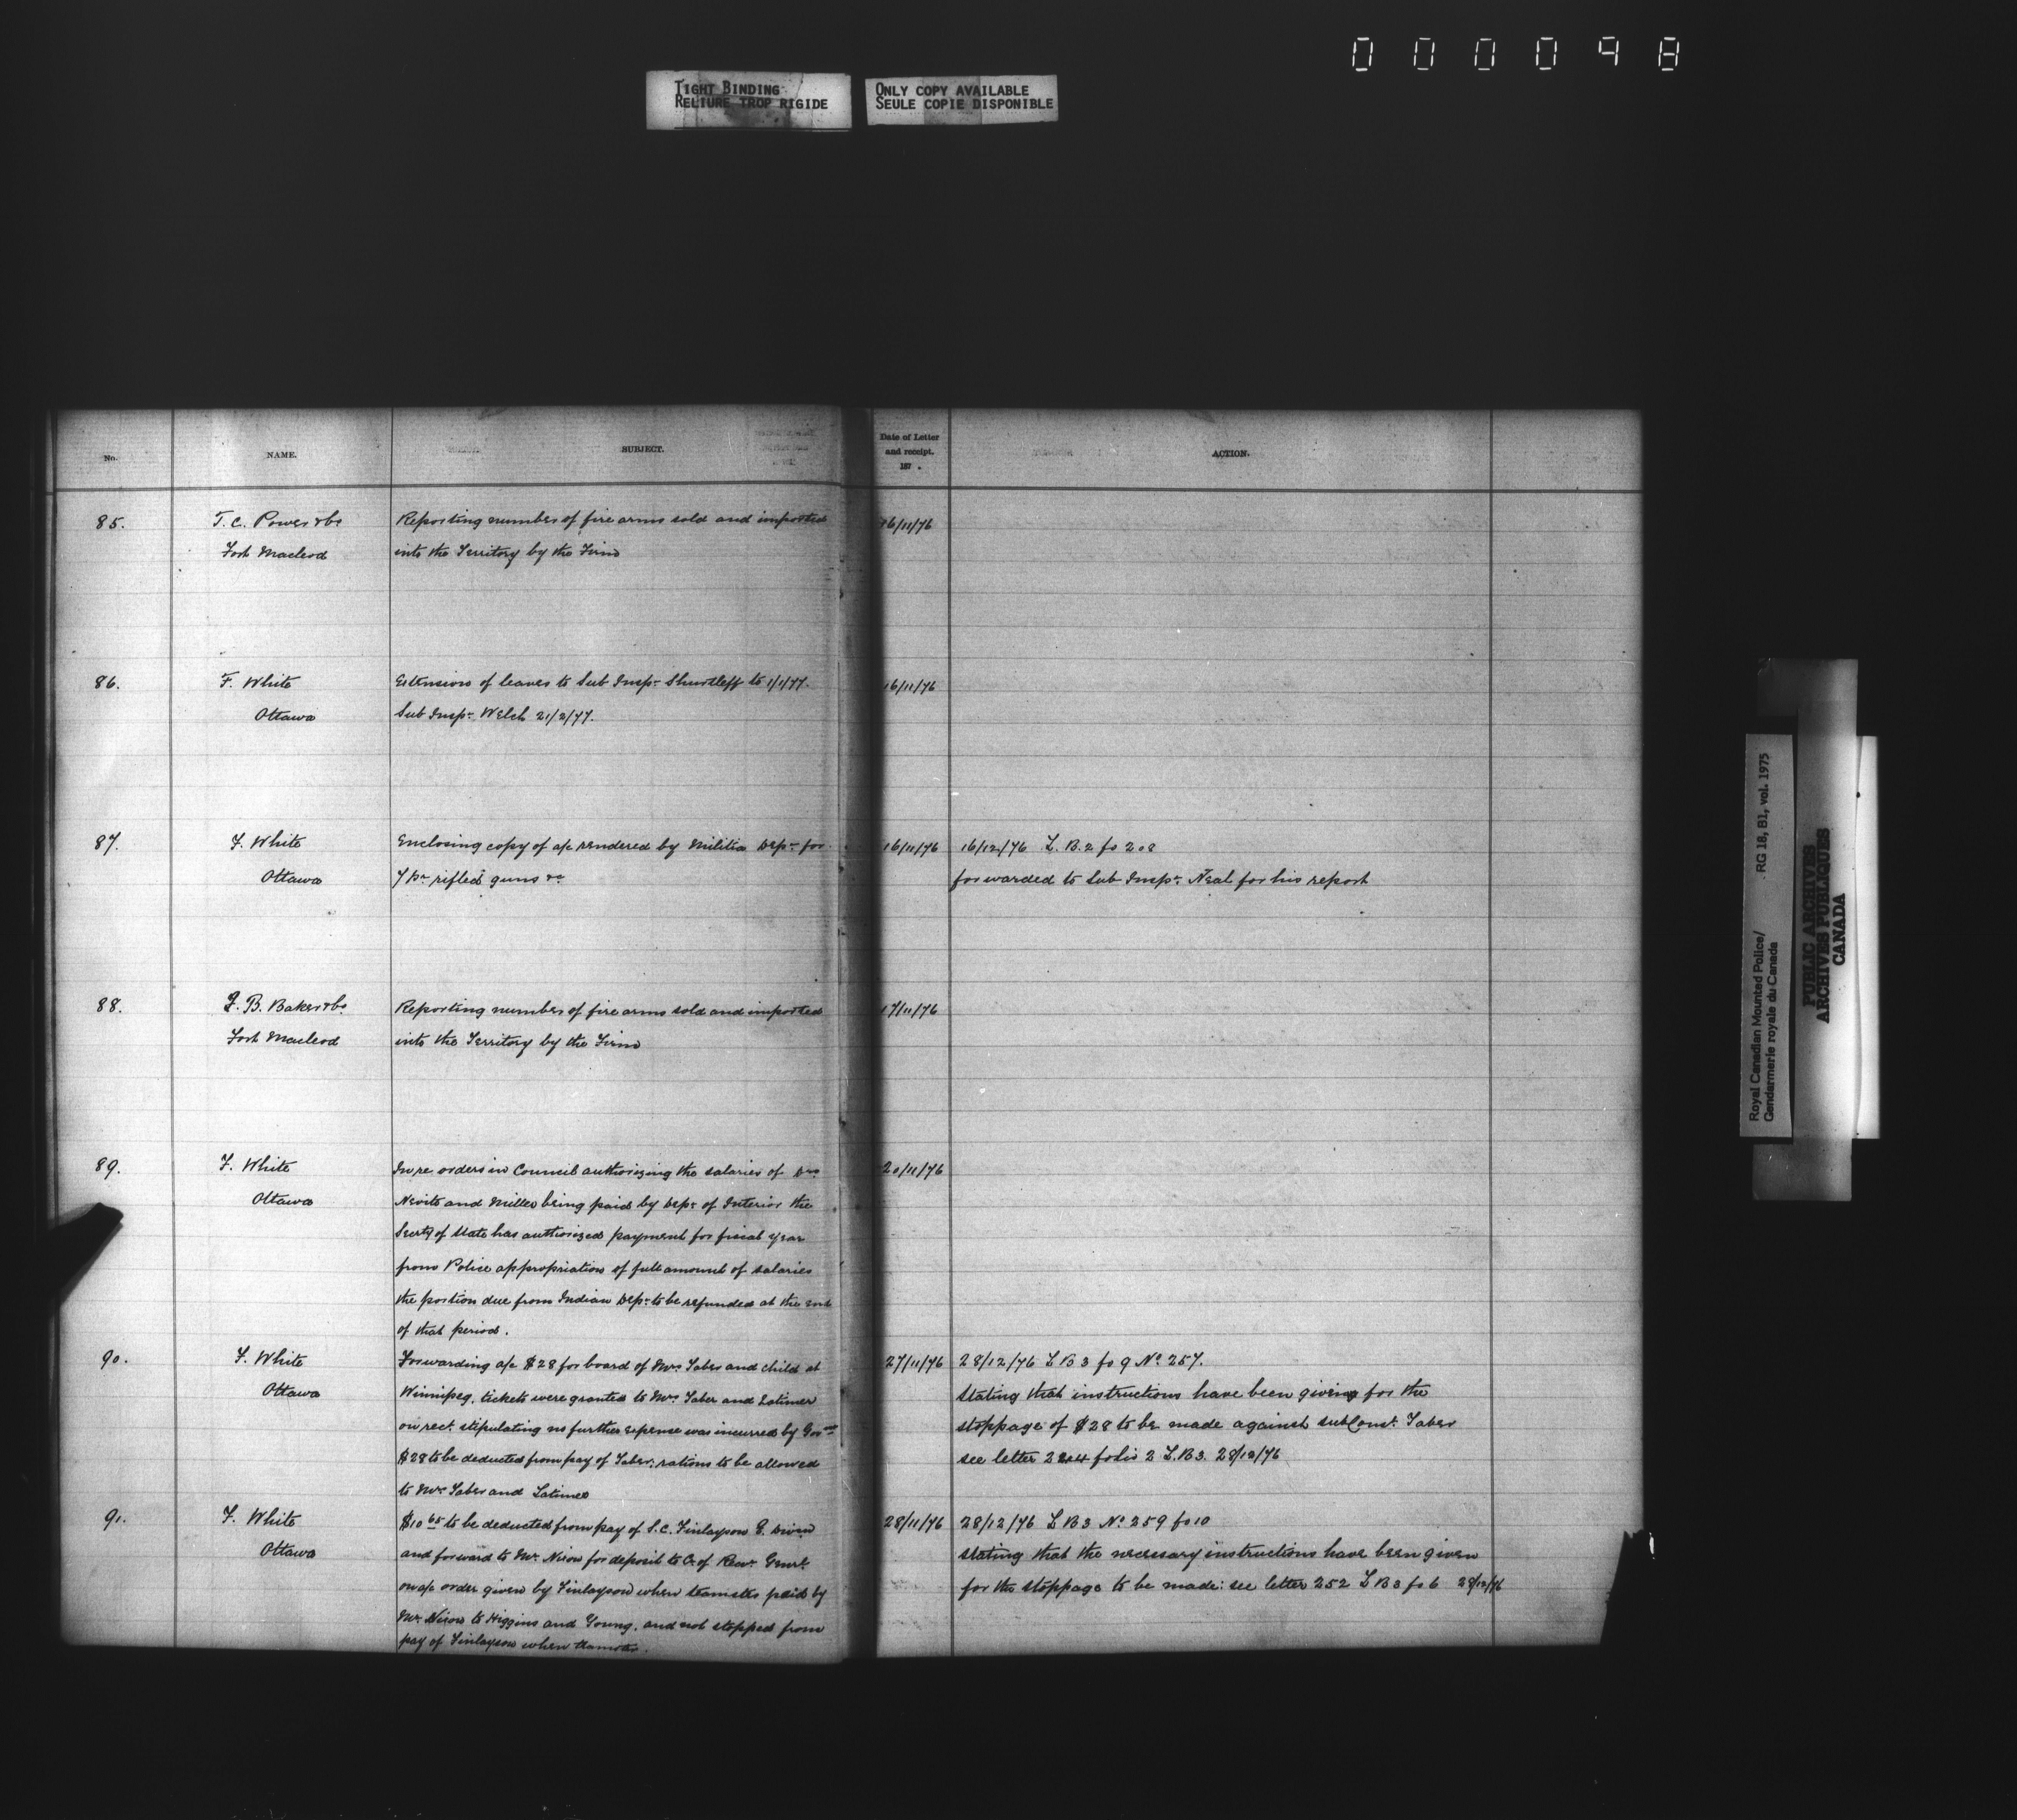 000098
TIGHT BINDING
RELIURE TROP RIGIDE
ONLY COPY AVAILABLE
SEULE COPIE DISPONIBLE
No. NAME. SUBJECT. Date of Letter and receipt. 187 . ACTION.
85. T. C. Power & Co Reporting number of fire arms sold and imported 16/11/76
Fort Macleod into the Territory by the Firm
86. F. White Extension of leaves to Sub Inspr. Shurtleff to 1/1/77. 16/11/76
Ottawa Sub Inspr. Welch 21/2/77.
87. F. White Enclosing copy of a/c rendered by Militia Dept. for 16/11/76 16/12/76 L. B. 2 fo 208
Ottawa 7 pr rifled guns &c forwarded to Sub Inspr. Neal for his report
88. I. B. Baker & Co. Reporting number of fire arms sold and imported 17/11/76
Fort Macleod into the Territory by the Firm
89. F. White In re orders in Council authorizing the salaries of Drs 20/11/76
Ottawa Nevitt and Miller being paid by Dept. of Interior the
Secrty of State has authorized payment for fiscal year
from Police appropriation of full amount of salaries
the portion due from Indian Dept. to be refunded at the end
of that period.
90. F. White Forwarding a/c $28 for board of Mrs Taber and child at 27/11/76 28/12/76 L B 3 fo 9 No. 257.
Ottawa Winnipeg, tickets were granted to Mrs. Taber and Latimer stating that instructions have been given for the
on rect. stipulating no further expense was incurred by Govnt stoppage of $28 to be made against sub Const. Taber
$28 to be deducted from pay of Taber: rations to be allowed see letter folio 2 L. B 3. 28/12/76
to Mrs Taber and Latimer
91. F. White $10 65 to be deducted from pay of S. C. Finlayson E. Divin 28/11/76 28/12/76 L B 3 No. 259 fo 10
Ottawa and forward to Mr. Nixon for deposit to Cr. of Recvr. Genrl. stating that the necessary instructions have been given
on a/c order given by Finlayson when teamster paid by for the stoppage to be made: see letter 252 L B 3 fo 6 28/12/76
Mr. Nixon to Higgins and Young, and not stopped from
pay of Finlayson when teamster.
Royal Canadian Mounted Police/
Gendarmerie royale du Canada
RG 18, B1, vol. 1975
PUBLIC ARCHIVES
ARCHIVES PUBLIQUES
CANADA